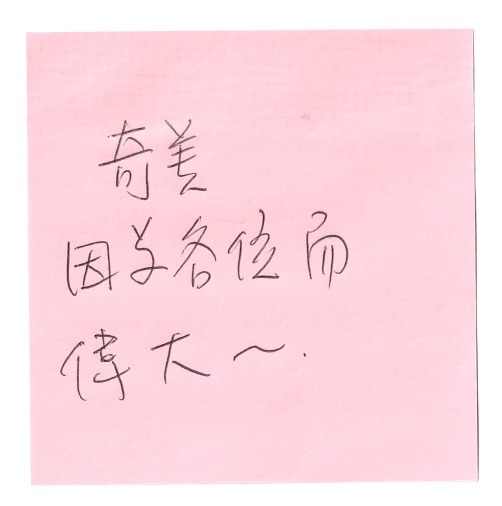 奇美
因為各位而
偉大～.